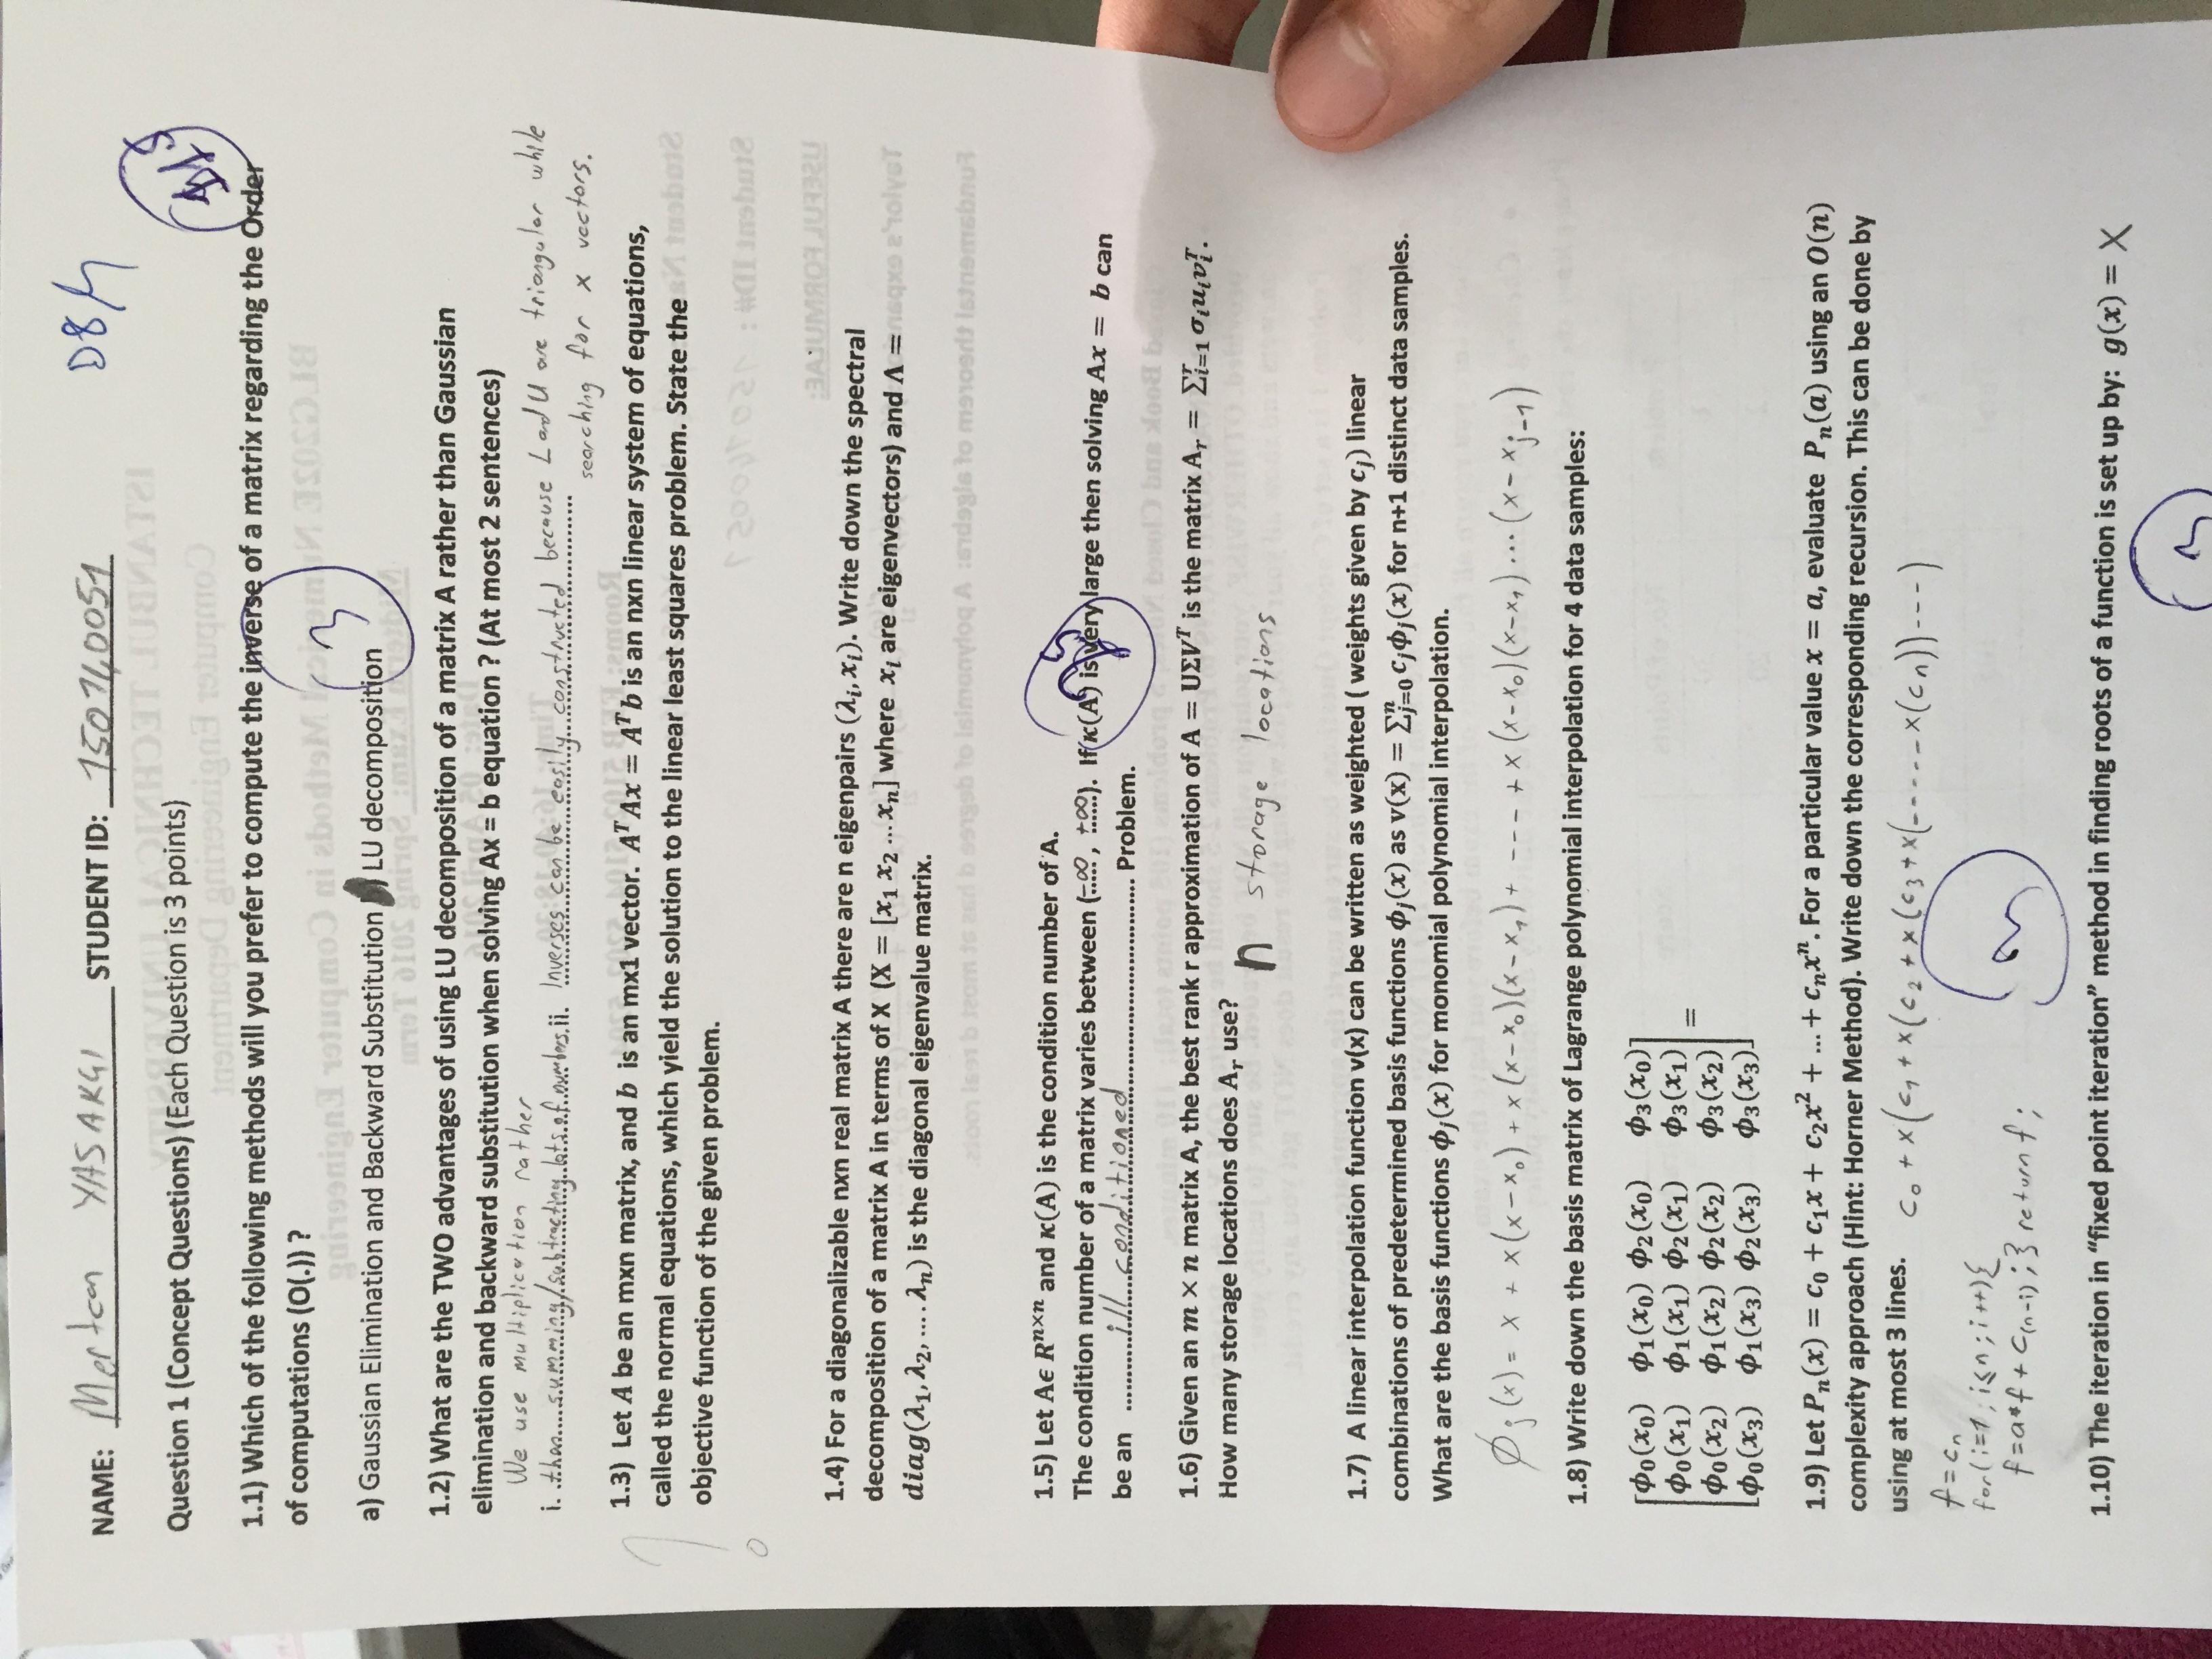 NAME: Mertcan YASAKÇI STUDENT ID: 150140051
Question 1 (Concept Questions) (Each Question is 3 points)
1.1) Which of the following methods will you prefer to compute the inverse of a matrix regarding the Order
of computations (O(.)) ?
3
a) Gaussian Elimination and Backward Substitution LU decomposition
1.2) What are the TWO advantages of using LU decomposition of a matrix A rather than Gaussian
elimination and backward substitution when solving Ax = b equation ? (At most 2 sentences)
We use multiplication rather
i. than summing/subtracting lots of numbers. ii. Inverses can be easily constructed because L and U are triangular while
searching for x vectors.
1.3) Let A be an mxn matrix, and b is an mx1 vector. AᵀAx = Aᵀb is an nxn linear system of equations,
called the normal equations, which yield the solution to the linear least squares problem. State the
objective function of the given problem.
1.4) For a diagonalizable nxn real matrix A there are n eigenpairs (λᵢ, xᵢ). Write down the spectral
decomposition of a matrix A in terms of X (X = [x₁ x₂ ... xₙ] where xᵢ are eigenvectors) and Λ =
diag(λ₁, λ₂, .... λₙ) is the diagonal eigenvalue matrix.
1.5) Let Aϵ Rⁿˣⁿ and κ(A) is the condition number of A.
The condition number of a matrix varies between (-∞, +∞). If κ(A) is very large then solving Ax = b can
be an ill conditioned Problem.
1.6) Given an m × n matrix A, the best rank r approximation of A = UΣVᵀ is the matrix Aᵣ = Σʳᵢ₌₁ σᵢuᵢvᵢᵀ.
How many storage locations does Aᵣ use?
n storage locations
1.7) A linear interpolation function v(x) can be written as weighted ( weights given by cⱼ) linear
combinations of predetermined basis functions ϕⱼ(x) as v(x) = Σⁿⱼ₌₀ cⱼϕⱼ(x) for n+1 distinct data samples.
What are the basis functions ϕⱼ(x) for monomial polynomial interpolation.
ϕⱼ(x) = x + x(x-x₀) + x(x-x₀)(x-x₁) + ---- + x(x-x₀)(x-x₁)...(x-xⱼ₋₁)
1.8) Write down the basis matrix of Lagrange polynomial interpolation for 4 data samples:
ϕ₀(x₀) ϕ₁(x₀) ϕ₂(x₀) ϕ₃(x₀)
ϕ₀(x₁) ϕ₁(x₁) ϕ₂(x₁) ϕ₃(x₁)
=
ϕ₀(x₂) ϕ₁(x₂) ϕ₂(x₂) ϕ₃(x₂)
ϕ₀(x₃) ϕ₁(x₃) ϕ₂(x₃) ϕ₃(x₃)
1.9) Let Pₙ(x) = c₀ + c₁x + c₂x² + ... + cₙxⁿ. For a particular value x = a, evaluate Pₙ(a) using an O(n)
complexity approach (Hint: Horner Method). Write down the corresponding recursion. This can be done by
using at most 3 lines. c₀ + x(c₁ + x(c₂ + x(c₃ + x(-----x(cₙ))---)
f = cₙ
for(i=1; i≤n; i++){
f = a*f + c₍ₙ₋ᵢ₎;} return f;
3
1.10) The iteration in "fixed point iteration" method in finding roots of a function is set up by: g(x) = X
3